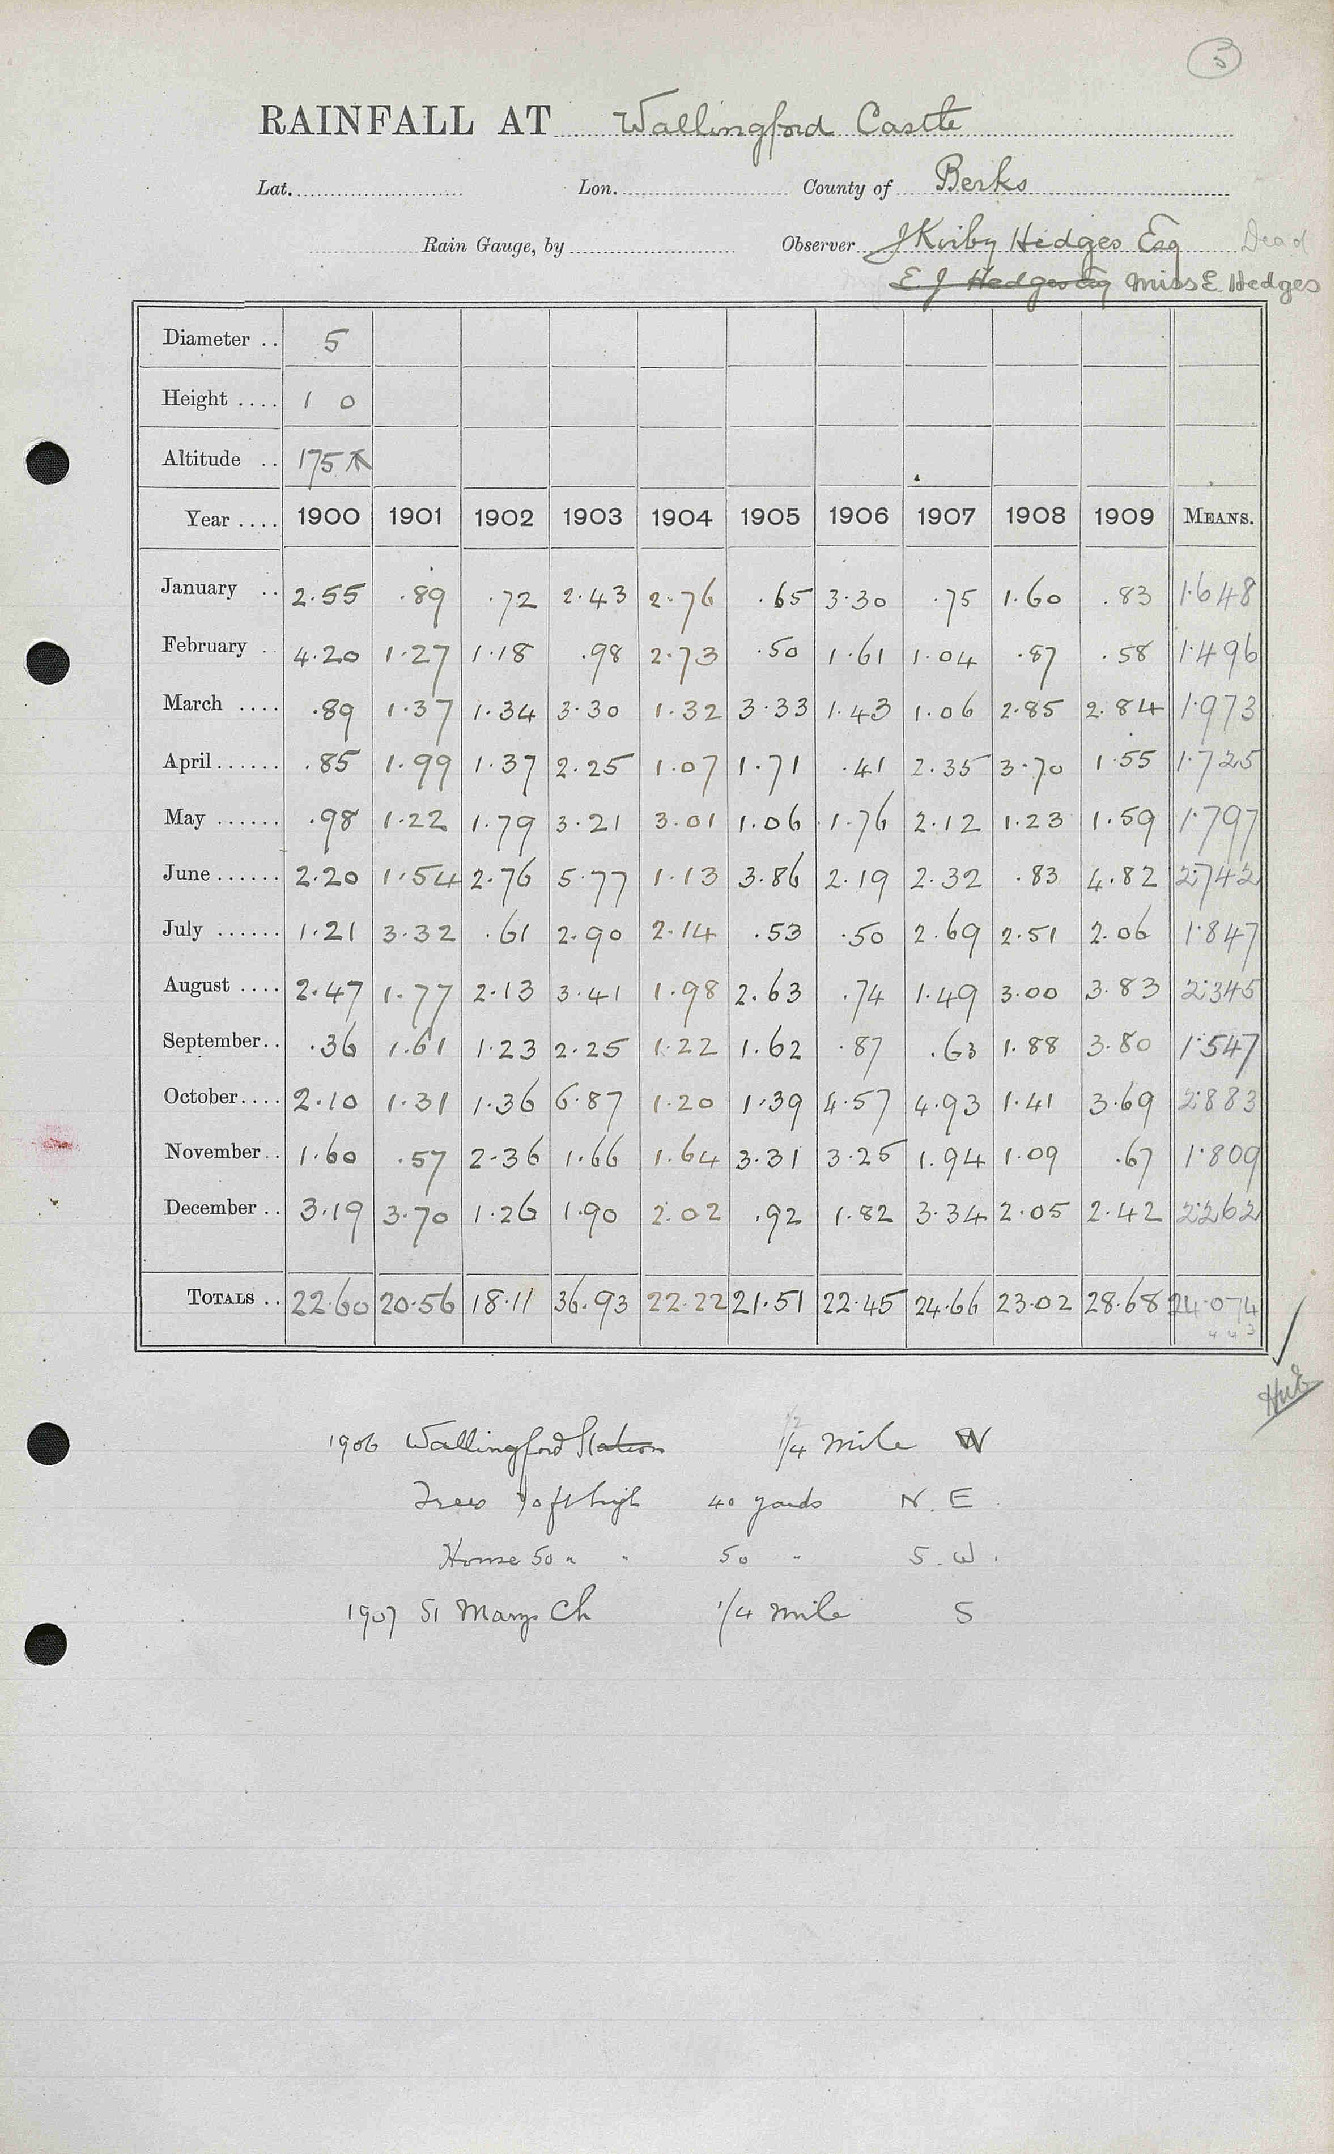 5
RAINFALL AT Wallingford Castle
Lat. Lon. County of Berks
Rain Gauge, by Observer J Kirby Hedges Esq Dead
E J Hedges Esq Miss E. Hedges
Diameter .. 5
Height .... 1 0
Altitude .. 175
Year .... 1900 1901 1902 1903 1904 1905 1906 1907 1908 1909 MEANS.
January .. 2.55 .89 .72 2.43 2.76 .65 3.30 .75 1.60 .83 1.648
February .. 4.20 1.27 1.18 .98 2.73 .50 1.61 1.04 .87 .58 1.496
March .... .89 1.37 1.34 3.30 1.32 3.33 1.43 1.06 2.85 2.84 1.973
April ...... .85 1.99 1.37 2.25 1.07 1.71 .41 2.35 3.70 1.55 1.725
May ...... .98 1.22 1.79 3.21 3.01 1.06 1.76 2.12 1.23 1.59 1.797
June ...... 2.20 1.54 2.76 5.77 1.13 3.86 2.19 2.32 .83 4.82 2.742
July ...... 1.21 3.32 .61 2.90 2.14 .53 .50 2.69 2.51 2.06 1.847
August .... 2.47 1.77 2.13 3.41 1.98 2.63 .74 1.49 3.00 3.83 2.345
September .. .36 1.61 1.23 2.25 1.22 1.62 .87 .63 1.88 3.80 1.547
October .... 2.10 1.31 1.36 6.87 1.20 1.39 4.57 4.93 1.41 3.69 2.883
November .. 1.60 .57 2.36 1.66 1.64 3.31 3.25 1.94 1.09 .67 1.809
December .. 3.19 3.70 1.26 1.90 2.02 .92 1.82 3.34 2.05 2.42 2.262
TOTALS .. 22.60 20.56 18.11 36.93 22.22 21.51 22.45 24.66 23.02 28.68 24.074
1/2
1906 Wallingford Station 1/4 mile W
Trees 70 ft high 40 yards N. E.
House 50 " " 50 " S. W.
1907 St Marys Ch 1/4 mile S